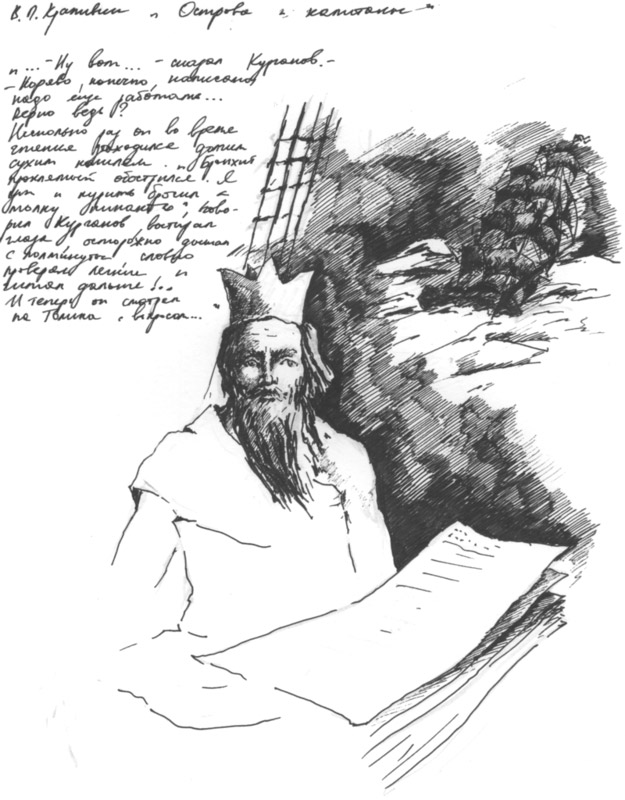 В. П. Крапивин „Острова и капитаны“
„...-Ну вот... - сказал Курганов.-
-Коряво, конечно, написано,
надо еще работать...
Верно ведь?
Несколько раз он во время
чтения заходился долгим
сухим кашлем. „Бронхит
проклятый обострился. Я
уж и курить бросил, а
толку
рил Курганов вытирал
глаза, осторожно дышал
с полминуты словно
проверял легкие и
читал дальше!..
И теперь он смотрел
на Толика с вопросом...